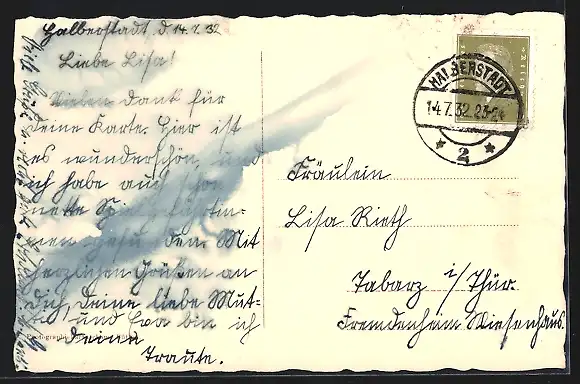 Halberstadt, d. 14.7.32
Liebe Lisa!
Vielen Dank für
Deine Karte. Hier ist
es wunderschön, und
ich habe auch schon
nette Spielgefährtin-
nen gefu den. Mit
herzlichen Grüßen an
Dich, Deine liebe Mut-
ti, und Eva bin ich
Deine
Traute.
HALBERSTADT
14.7.32.
* 2 *
Fräulein
Lisa Rieth
Tabarz i/Thür.
Fremdenheim Wiesenhaus.